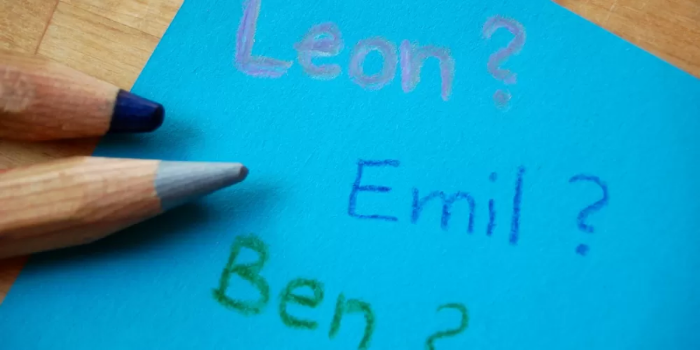 Leon ?
Emil ?
Ben ?